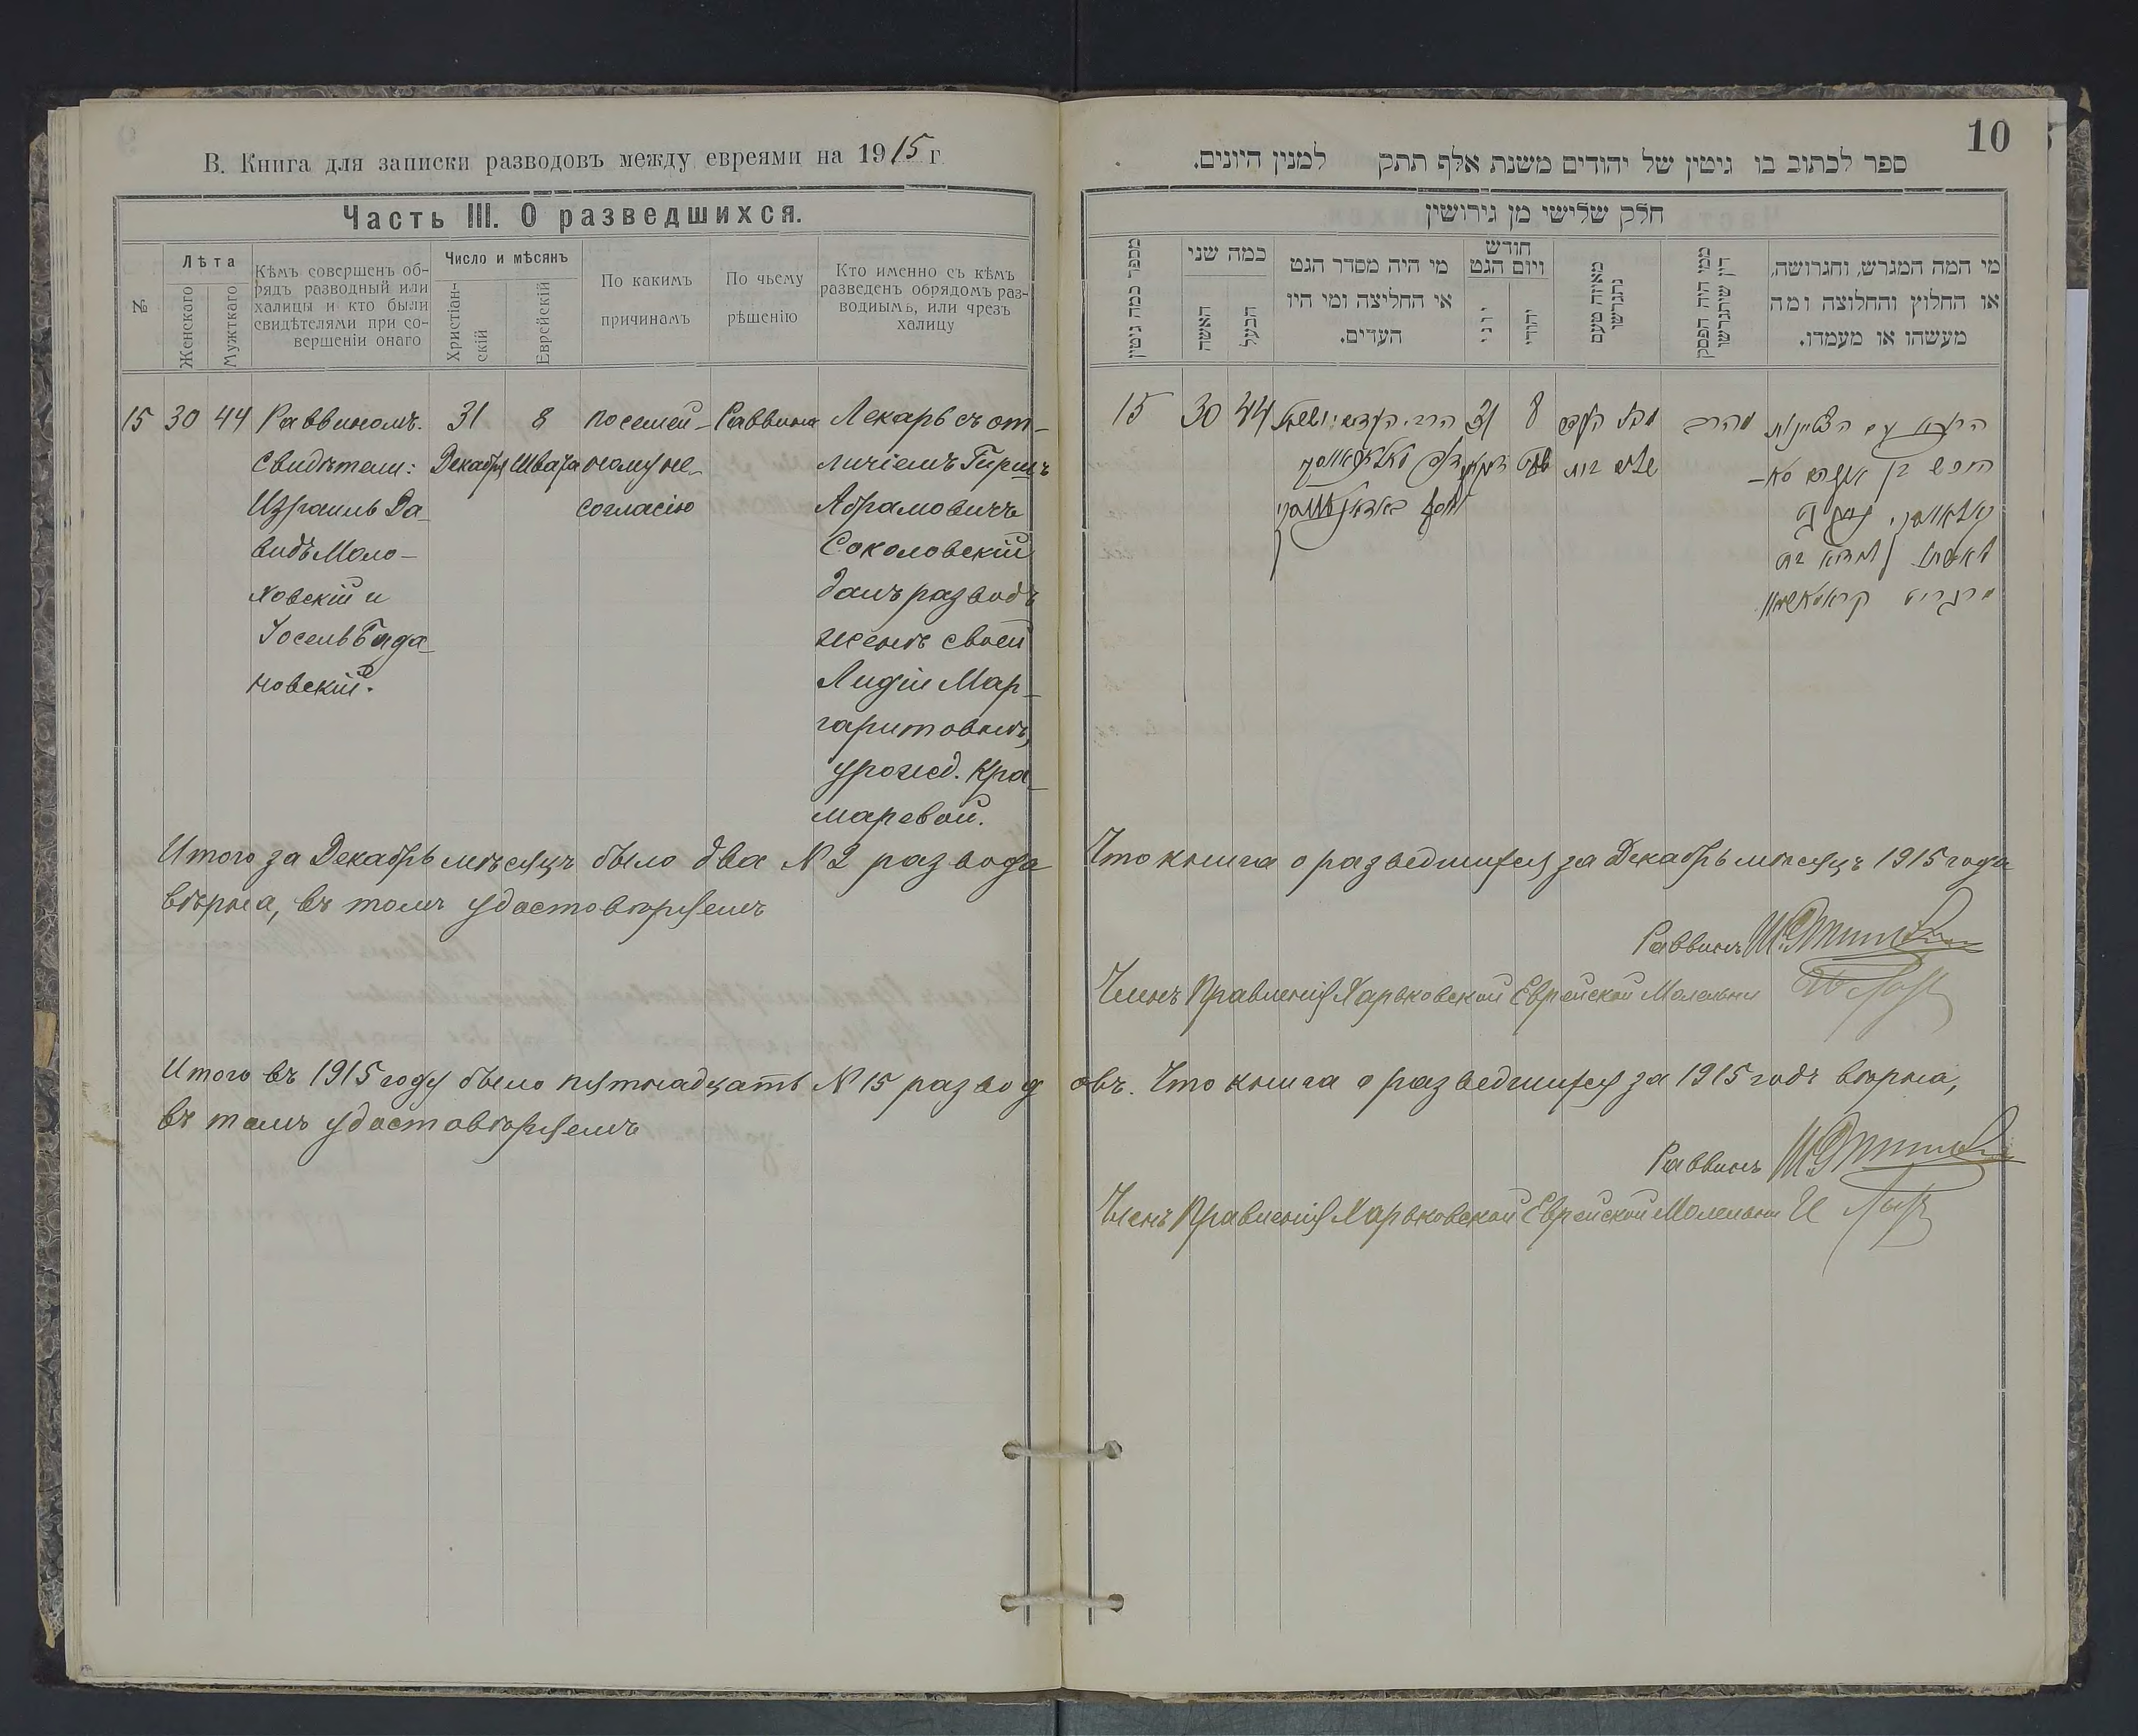 В. Книга для записки разводовъ между евреями на 1915 г.
Часть III. О разведшихся.
№
Лѣта
Женскаго
Мужткаго
Кѣмъ совершенъ об-
рядъ разводный или
халицы и кто были
свидѣтелями при со-
вершеніи онаго
Число и мѣсянъ
Христіан-
скій
Еврейскій
По какимъ
причинамъ
По чьему
рѣшенію
Кто именно съ кѣмъ
разведенъ обрядомъ раз-
воднымъ, или чрезъ
халицу
15 30 44 Раввиномъ. 31 8 по семей- Раввина Лекарь съ от-
Свидѣтели: Декабря Швата ному не- личіемъ Гиршъ
Израиль Да- согласію Абрамовичъ
видъ Моло- Соколовскій
ховскій и далъ разводъ
Іосель женѣ своей
новскій. Лидіи Мар-
гаритовнѣ,
урожд. Кра-
маревой.
Итого за Декабрь мѣсяцъ было два № 2 развода
вѣрна, въ томъ удостовѣряемъ
Итого въ 1915 году было пятнадцать № 15 развод
въ томъ удостовѣряемъ
10
ספר לכתוב בו גיטין של יהודים משנת אלף תתק למנין היונים.
חלק שלישי מן גירושין
מספר כמה גיטין
כמה שני
האשה
הבעל
מי היה מסדר הגט
או החליצה ומי היו
העדים.
חודש
ויום הגט
יוני
יהודי
מאיזה טעם
נתגרשו
ממי היה הפסק
דין שיתגרשו
מי המה המגרש, והגרושה,
או החלוץ והחלוצה ומה
מעשהו או מעמדו.
15 30 44 31 8
Что книга о разведшихся за Декабрь мѣсяцъ 1915 года
Раввинъ
Членъ Правленія Харьковской Еврейской Молельни
овъ. Что книга о разведшихся за 1915 годъ вѣрна,
Раввинъ
Членъ Правленія Харьковской Еврейской Молельни